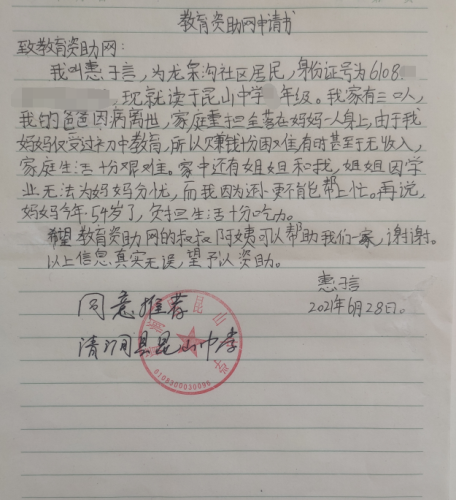 教育资助网申请书
致教育资助网：
我叫惠子言，为龙泉沟社区居民，身份证号为6108
现就读于昆山中学 年级。我家有三口人，
我的爸爸因病离世，家庭重担全落在妈妈一人身上，由于我
妈妈仅受过初中教育，所以赚钱十分困难有时甚至于无收入，
家庭生活十分艰难。家中还有姐姐和我，姐姐因学
业无法为妈妈分忧，而我因为还小更不能帮上忙。再说，
妈妈今年54岁了，负担生活十分吃力。
希望教育资助网的叔叔阿姨可以帮助我们一家，谢谢。
以上信息真实无误，望予以资助。
惠子言
2021年6月28日。
同意推荐
清涧县昆山中学